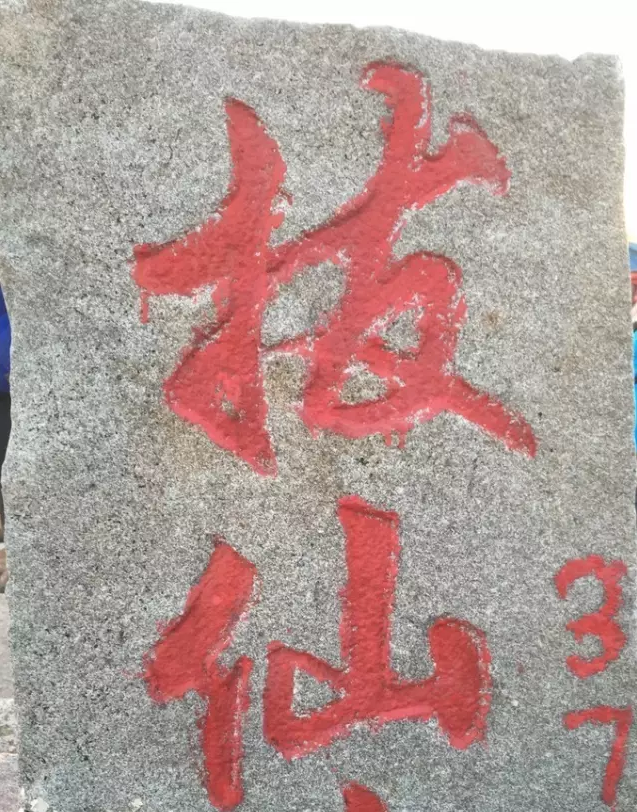 拔仙
37